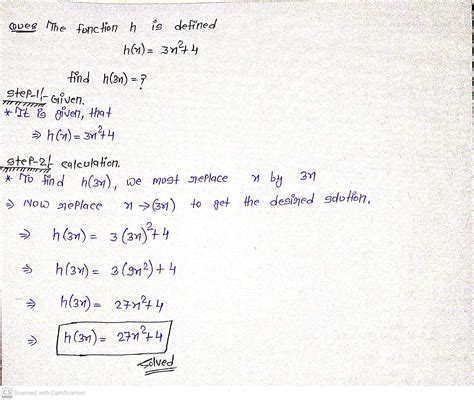 Ques The function h is defined
h(x) = 3x²+4
find h(3x) = ?
Step-1:- Given.
* It is given, that
⇒ h(x) = 3x²+4
Step-2:- calculation.
* To find h(3x), we most replace x by 3x
⇒ Now replace x → (3x) to get the desired solution.
⇒ h(3x) = 3(3x)²+4
⇒ h(3x) = 3(9x²)+4
⇒ h(3x) = 27x²+4
⇒ h(3x) = 27x²+4
Solved
CS Scanned with CamScanner